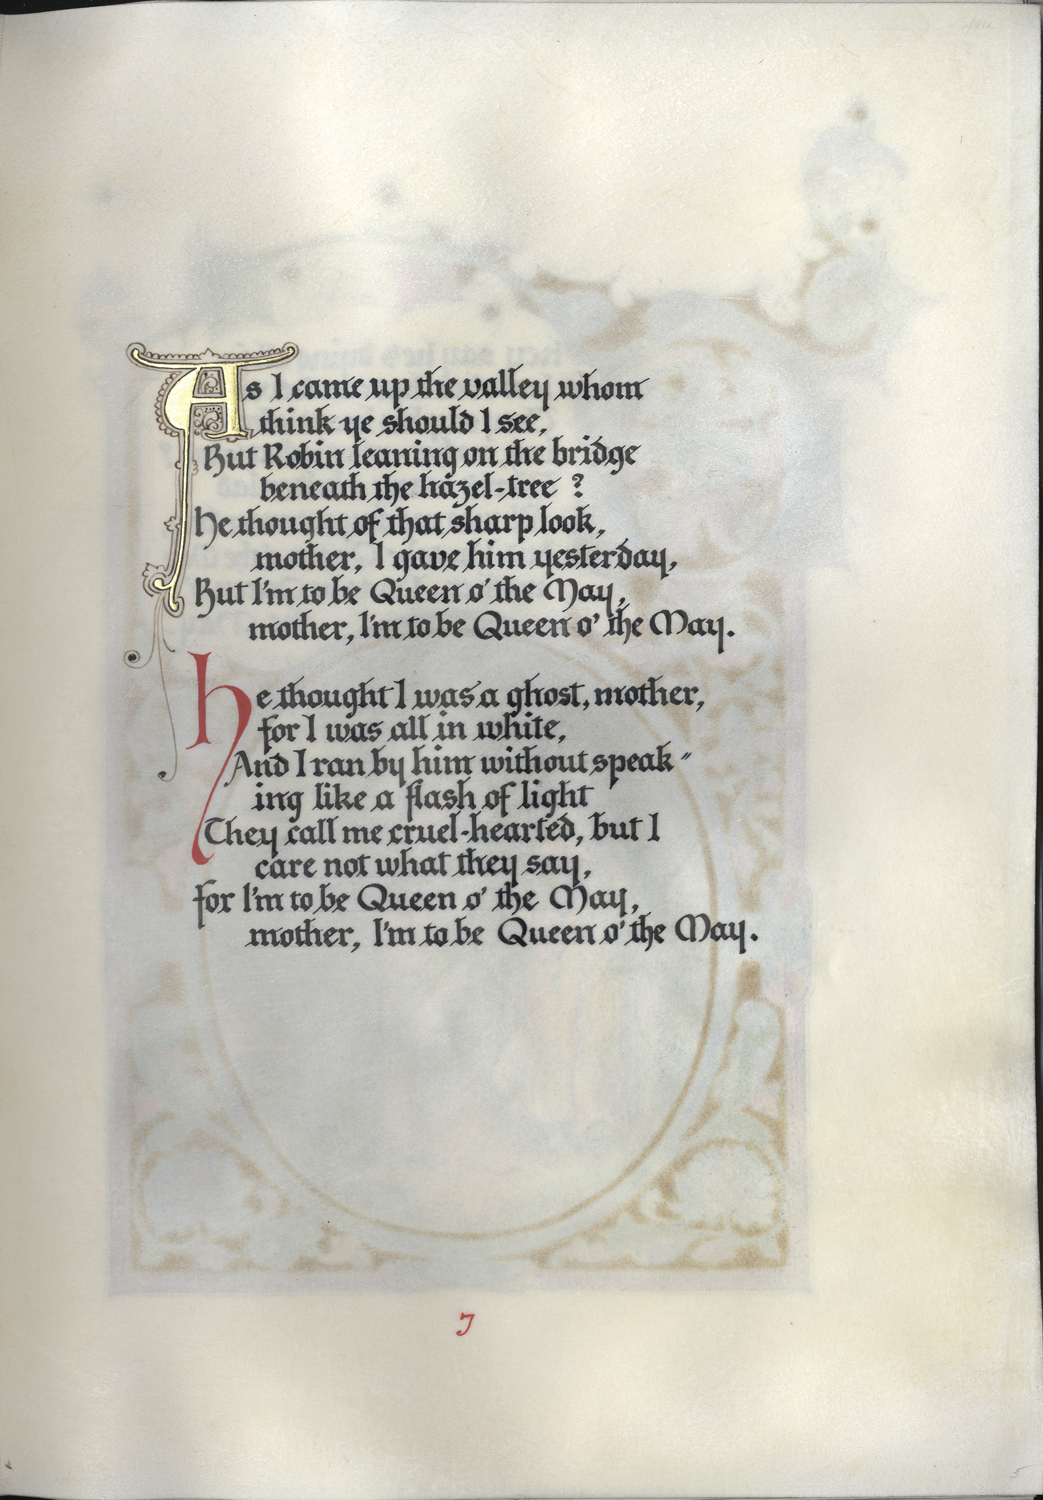 As I came up the valley whom
think ye should I see,
But Robin leaning on the bridge
beneath the hazel-tree ?
He thought of that sharp look,
mother, I gave him yesterday,
But I'm to be Queen o' the May,
mother, I'm to be Queen o' the May.
He thought I was a ghost, mother,
for I was all in white,
And I ran by him without speak-
ing like a flash of light
They call me cruel-hearted, but I
care not what they say,
for I'm to be Queen o' the May,
mother, I'm to be Queen o' the May.
7